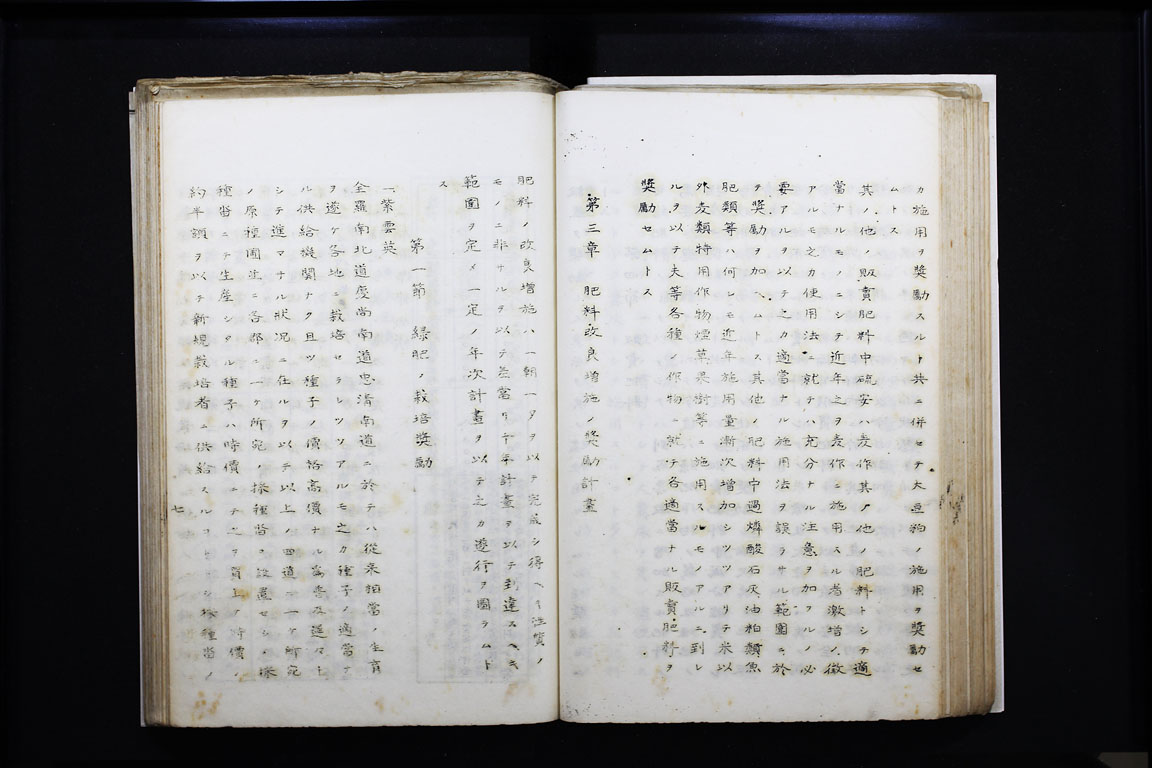 カ施用ヲ奬勵スルト共ニ併セテ大豆粕ノ施用ヲ奬勵セ
ムトス
其ノ他ノ販賣肥料中硫安ハ麦作其ノ他ノ肥料トシテ適
當ナルモノニシテ近年之ヲ麦作ニ施用スル者激增ノ徴
アルモ之カ使用法ニ就テハ充分ナル注意ヲ加フルノ必
要アルヲ以テ之カ適當ナル施用法ヲ誤ラサル範圍ニ於
テ奬勵ヲ加ヘムトス其他ノ肥料中過燐酸石灰油粕類魚
肥類等ハ何レモ近年施用量漸次增加シツツアリテ米以
外麦類特用作物煙草果樹等ニ施用スルモノアルニ到レ
ルヲ以テ夫等各種ノ作物ニ就テ各適當ナル販賣肥料ヲ
奬勵セムトス
第三章 肥料改良增施ノ奬勵計畫
肥料ノ改良增施ハ一朝一夕ヲ以テ完成シ得ヘキ性質ノ
モノニ非サルヲ以テ差當リ十年計畫ヲ以テ到達スヘキ
範圍ヲ定メ一定ノ年次計畫ヲ以テ之カ遂行ヲ圖ラムト
ス
第一節 緑肥ノ栽培奬勵
一紫雲英
全羅南北道慶尚南道忠清南道ニ於テハ從来相當ノ生育
ヲ遂ケ各地ニ栽培セラレツツアルモ之カ種子ノ適當ナ
ル供給機關ナク且ツ種子ノ價格高價ナル為普及遅々ト
シテ進マサル状况ニ在ルヲ以テ以上ノ四道ニ一ケ所宛
ノ原種圃並ニ各郡ニ一ケ所宛ノ採種畓ヲ設置セシメ採
種畓ニテ生産シタル種子ハ時價ニテ之ヲ買上ケ時價ノ
約半額ヲ以テ新規栽培者ニ供給スルコトトシ採種畓ノ
七